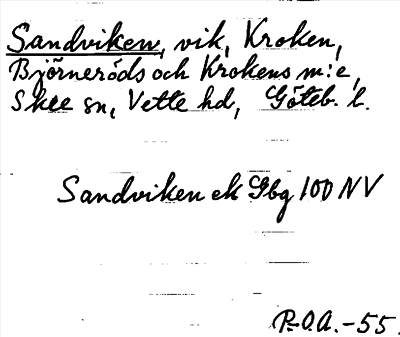 Sandviken, vik, Kroken,
Björneröds och Krokens m:e,
Skee sn, Vette hd, Göteb. l.
Sandviken ek Gbg 100 NV
P.O.A. -55.